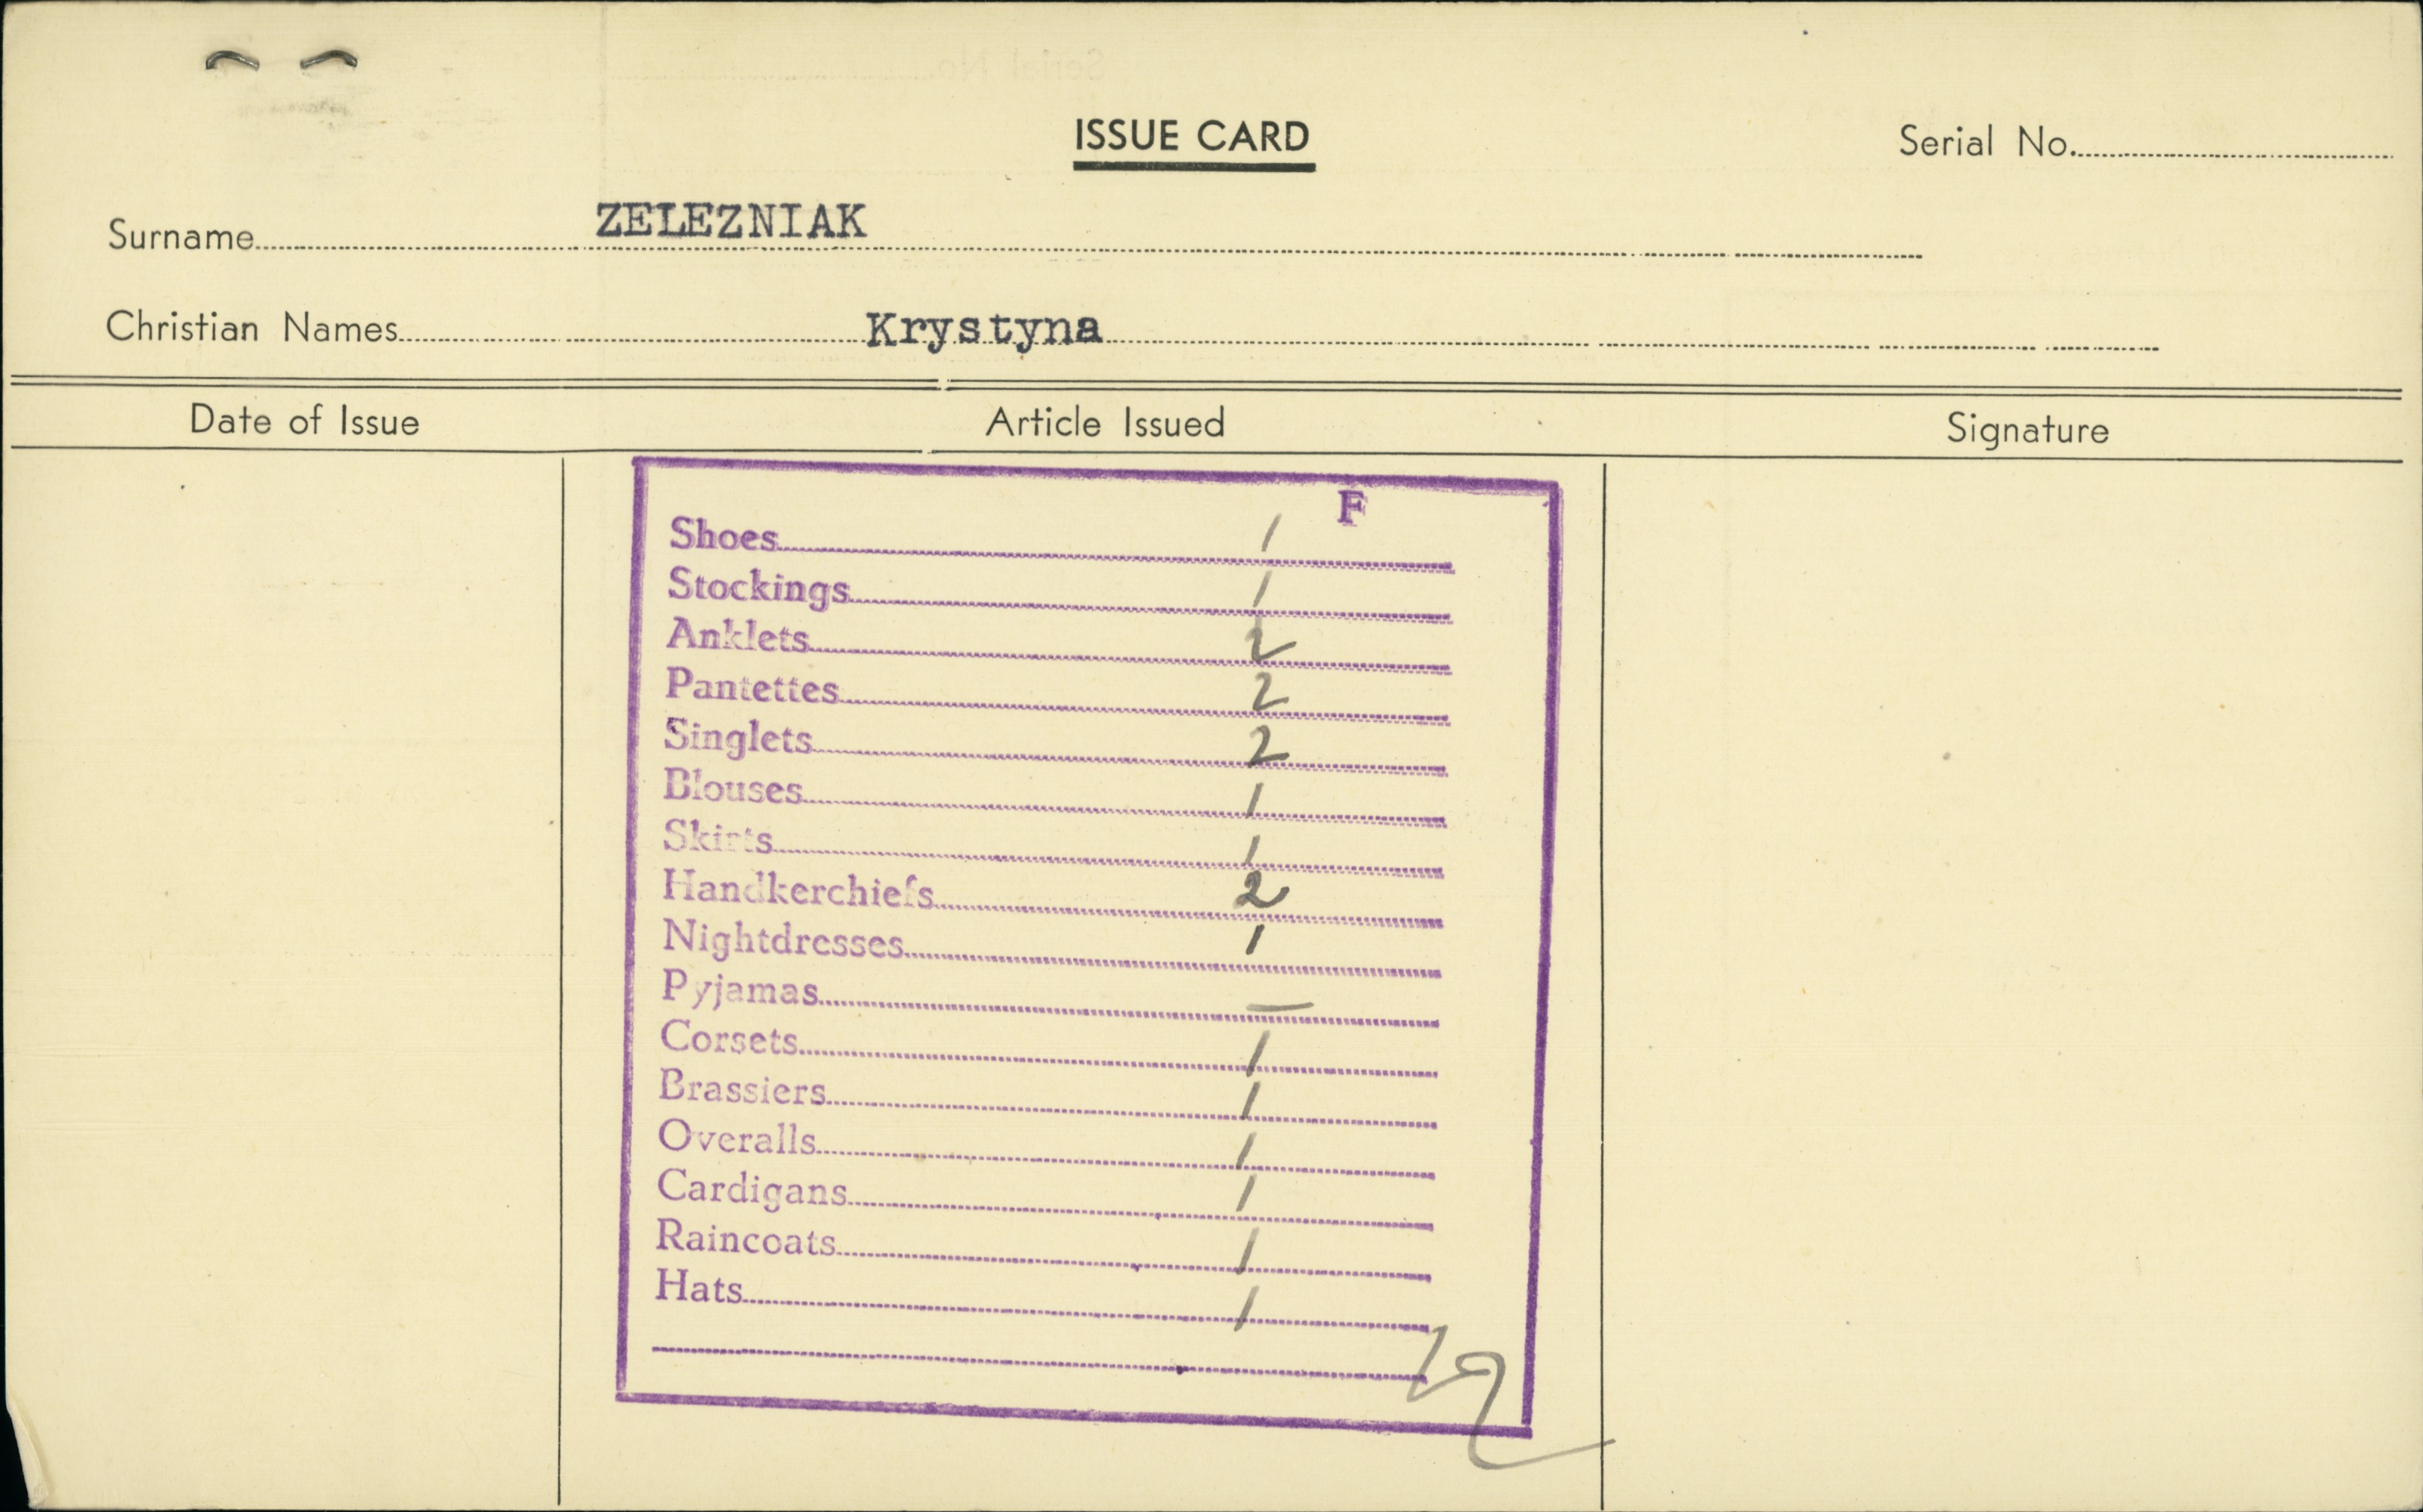 ISSUE CARD
Serial No.
Surname ZELEZNIAK
Christian Names Krystyna
Date of Issue Article Issued Signature
F
Shoes 1
Stockings 1
Anklets 2
Pantettes 2
Singlets 2
Blouses 1
Skirts 1
Handkerchiefs 2
Nightdresses 1
Pyjamas —
Corsets 1
Brassiers 1
Overalls 1
Cardigans 1
Raincoats 1
Hats 1